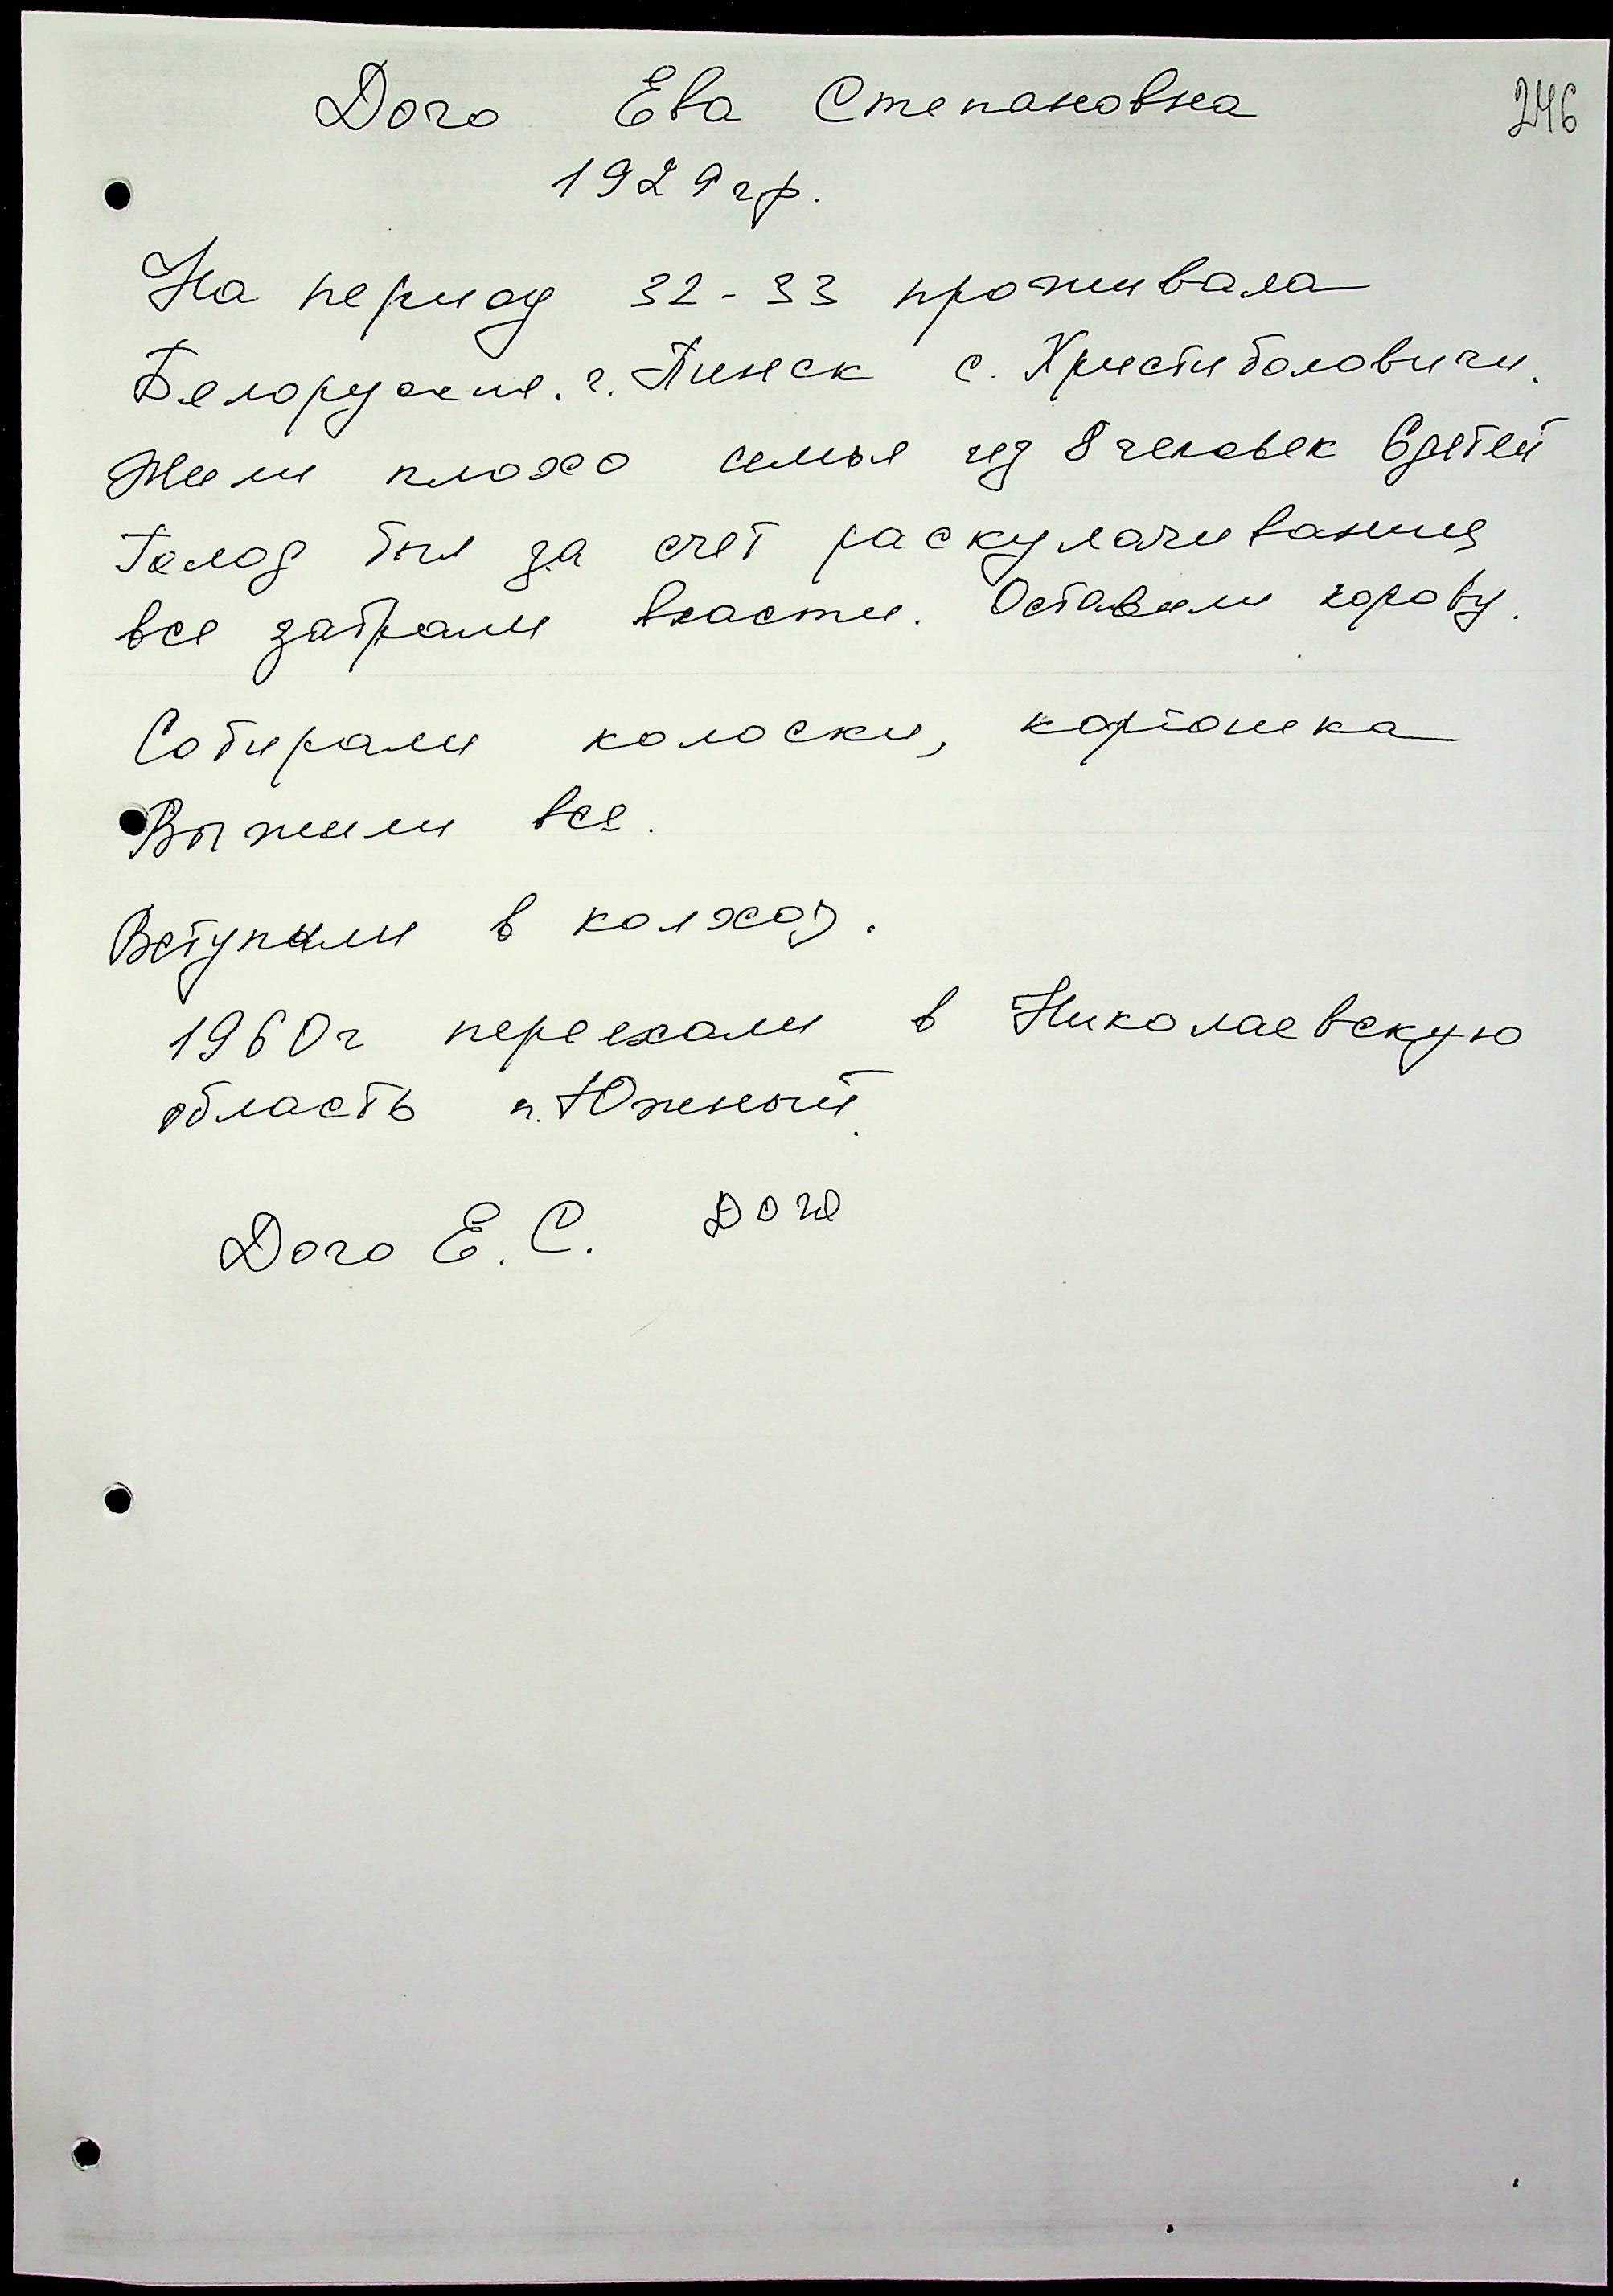 Дого Ева Степановна
246
1929 гр.
На период 32-33 проживала
Белоруссия. г. Пинск с. Христиболовичи.
Жили плохо семья из 8 человек 6 детей
Голод был за счет раскулачивания
все забрали власти. Оставили корову.
Собирали колоски, картошка
Выжили все.
Вступили в колхоз.
1960г переехали в Николаевскую
область п. Южный.
Дого Е. С. Дого